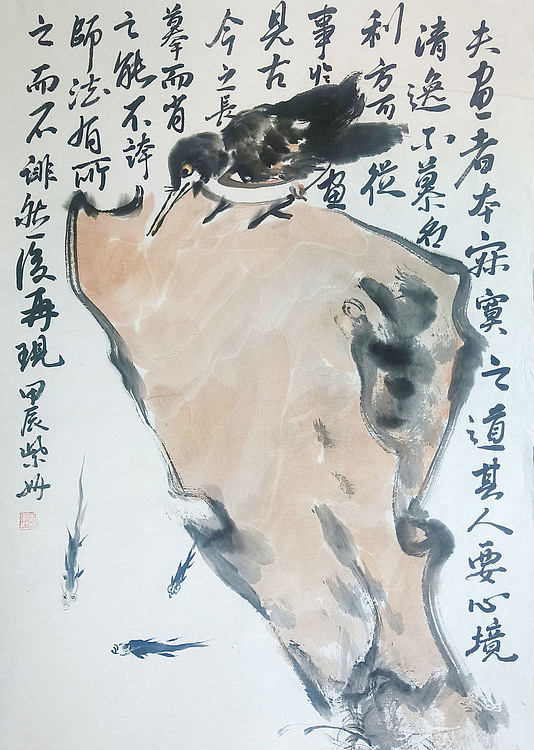 夫畫者本寂寞之道其人要心境
清逸不慕名
利方可從
事於畫
見古
今之長
摹而肖
之能不誇
師法有所
之而不誹然後再現甲辰紫